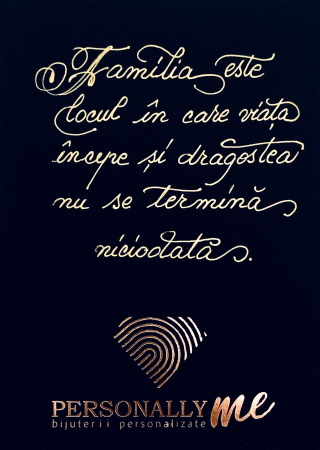 Familia este
locul în care viața
începe și dragostea
nu se termină
niciodată.
PERSONALLY me
bijuterii personalizate